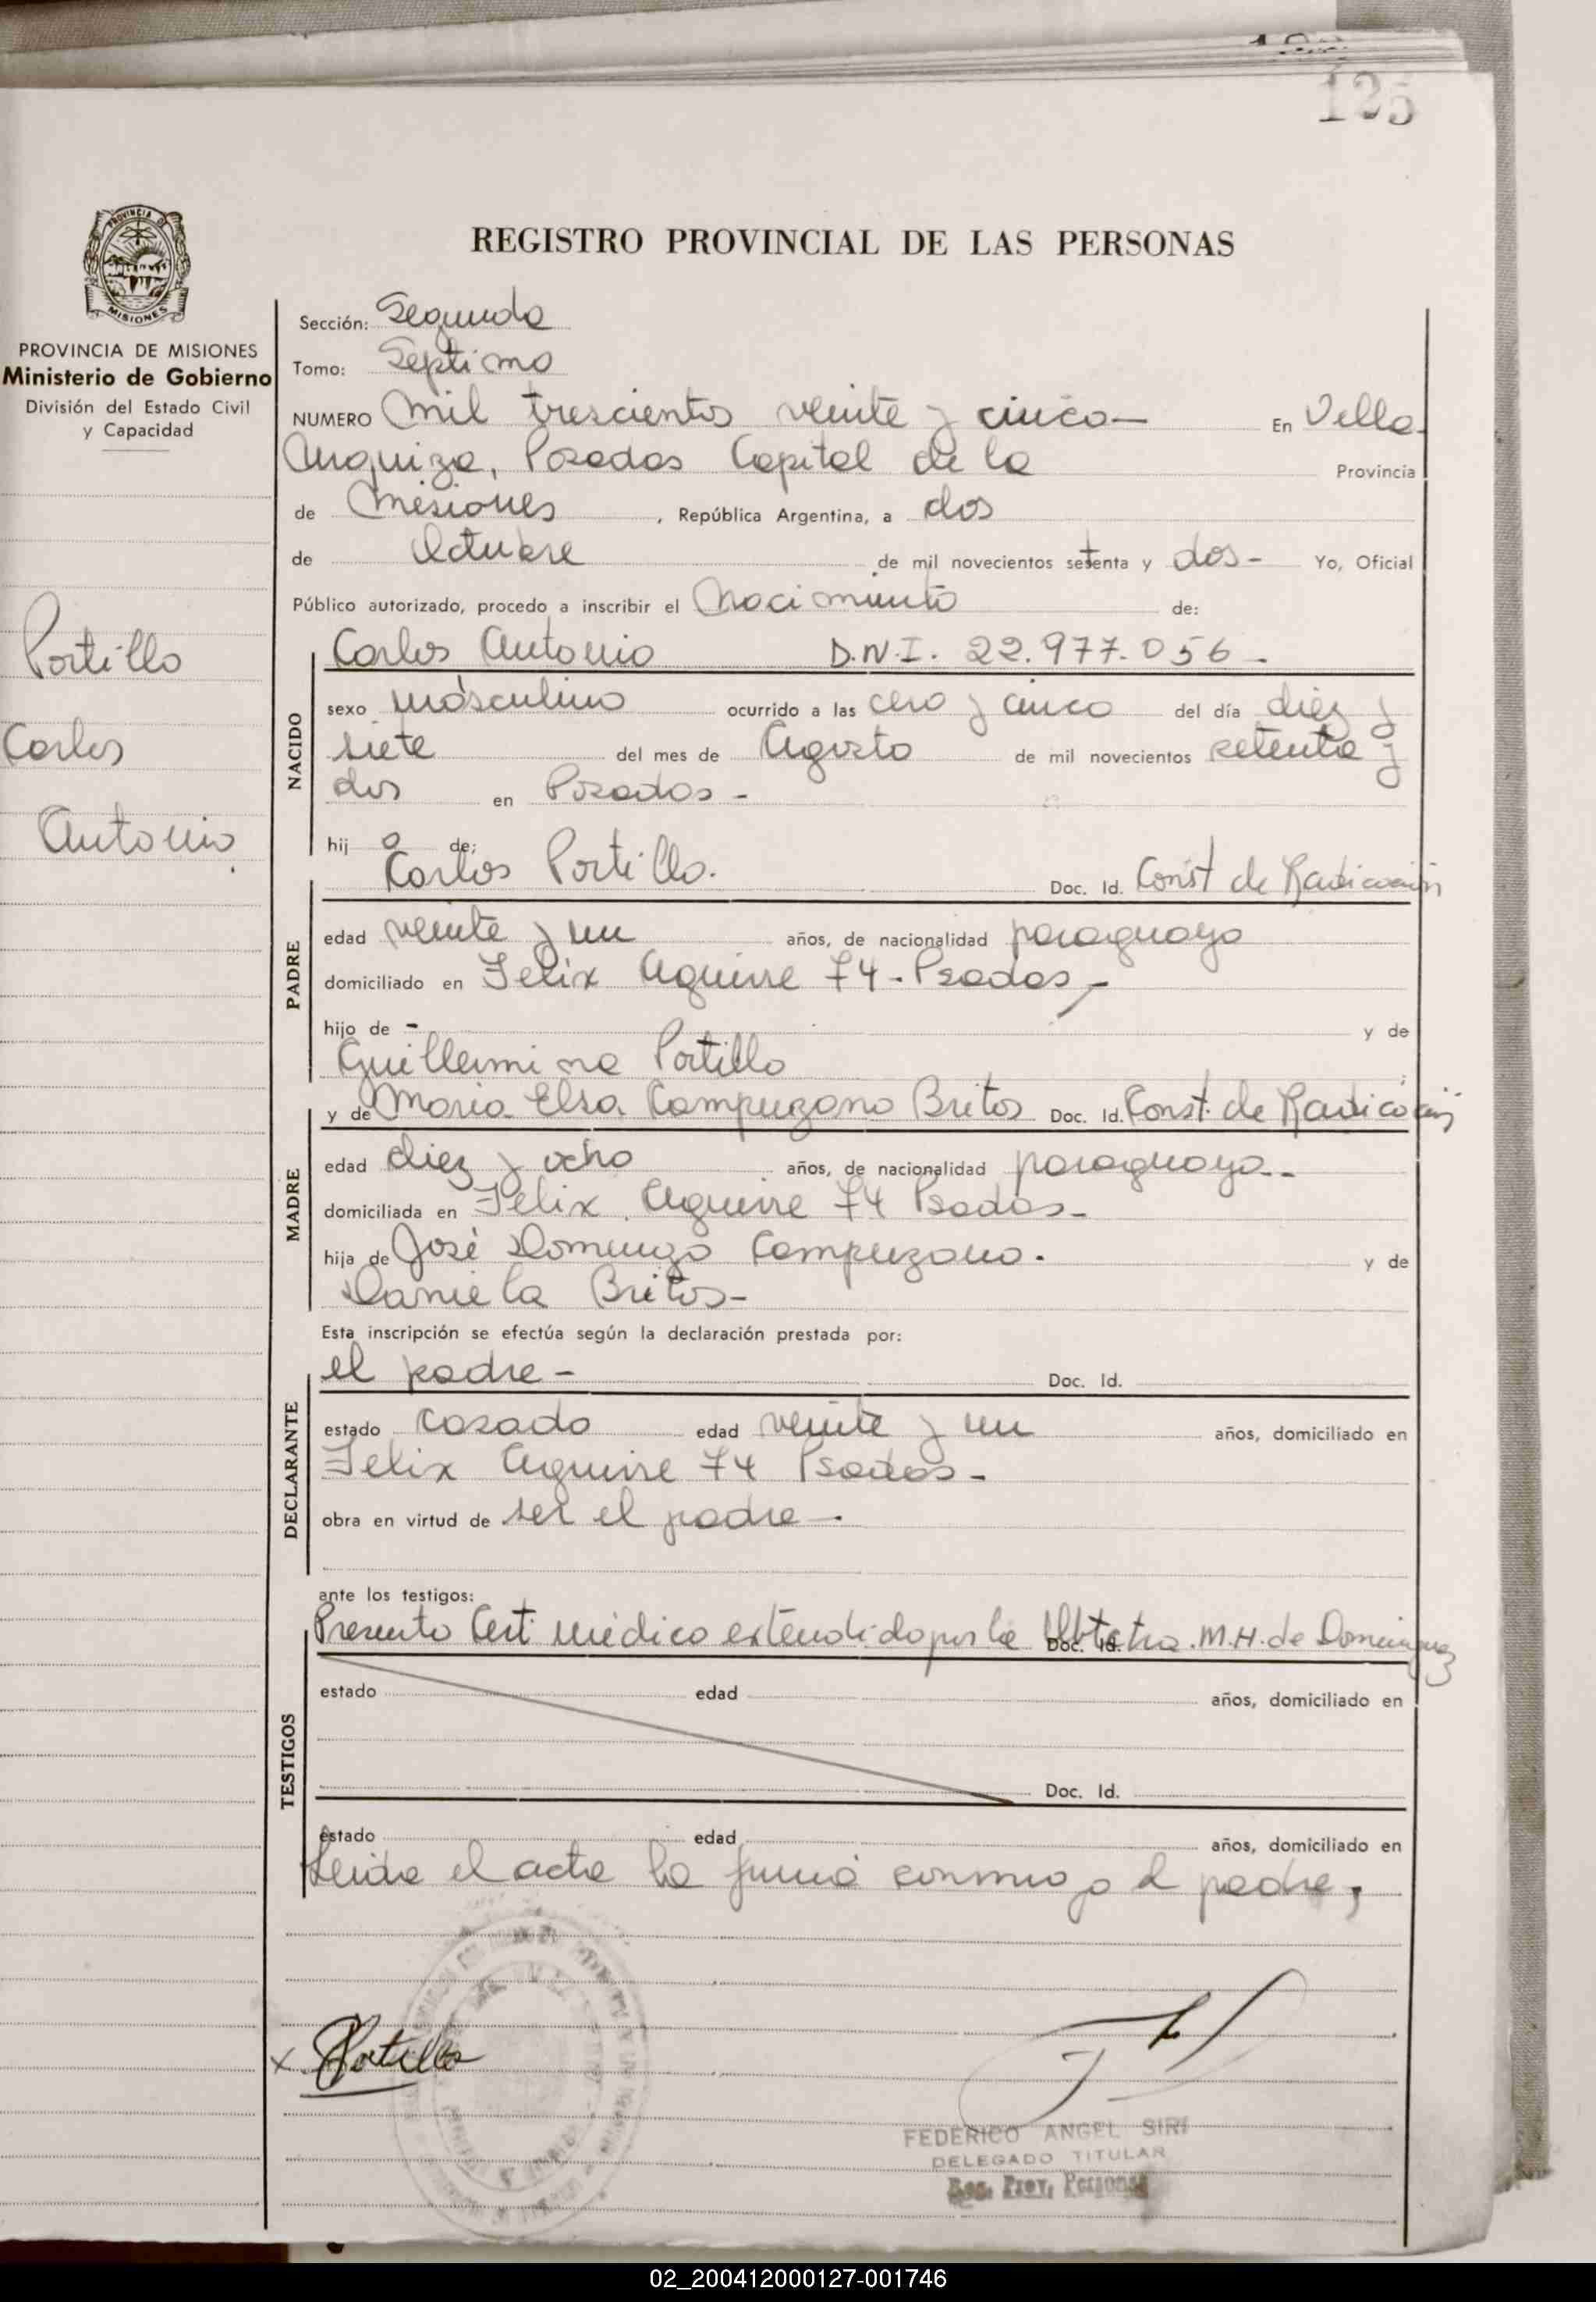 125
REGISTRO PROVINCIAL DE LAS PERSONAS
PROVINCIA DE MISIONES
Ministerio de Gobierno
División del Estado Civil
y Capacidad
Portillo
Carlos
Antonio
Sección: Segunda
Tomo: Septimo
NUMERO mil trescientos veinte y cinco— En Villa
Urquiza, Posadas Capital de la Provincia
de Misiones, República Argentina, a dos
de Octubre de mil novecientos setenta y dos- Yo, Oficial
Público autorizado, procedo a inscribir el Nacimiento de:
Carlos Antonio D.N.I. 22.977.056-
NACIDO
sexo masculino ocurrido a las cero y cinco del día diez y
siete del mes de Agosto de mil novecientos setenta y
dos en Posadas-
hij o de:
PADRE
Carlos Portillo. Doc. Id. Const de Radicación
edad veinte y un años, de nacionalidad paraguaya
domiciliado en Felix Aguirre 74-Psadas-
hijo de - y de
Guillermina Portillo
MADRE
y de Maria Elsa Campuzano Britos Doc. Id. Const. de Radicación
edad diez y ocho años, de nacionalidad paraguaya-
domiciliada en Felix Aguirre 74 Psadas-
hija de José Domingo Campuzano. y de
Daniela Britos-
Esta inscripción se efectúa según la declaración prestada por:
DECLARANTE
el padre- Doc. Id.
estado casado edad veinte y un años, domiciliado en
Felix Aguirre 74 Psadas-
obra en virtud de ser el padre-.
ante los testigos:
TESTIGOS
Presento Cert médico extendido por la Obtetra Doc. Id. M.H. de Dominguez
estado edad años, domiciliado en
Doc. Id.
estado edad años, domiciliado en
Leida el acta la firma conmigo el padre,
x Portillo
FEDERICO ANGEL SIRI
DELEGADO TITULAR
Reg. Prov. Personas
02_200412000127-001746